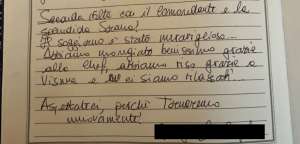 Seconda volta con il Comandante e lo
splendido Staono!
Il soggiorno è stato meraviglioso...
Abbiamo mangiato benissimo grazie
allo chef, abbiamo riso grazie a
e ci siamo rilassati...
Aspettateci, perché Torneremo
nuovamente!